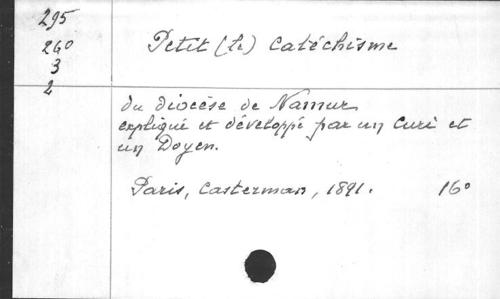 295
260
3
2
Petit (le) catéchisme
du diocèse de Namur
expliqué et développé par un curé et
un Doyen.
Paris, Casterman, 1891. 16°